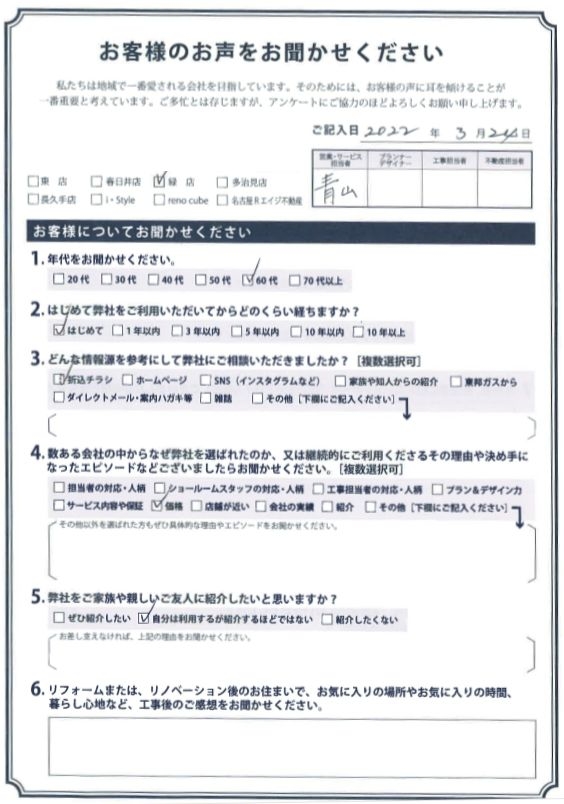 お客様のお声をお聞かせください
私たちは地域で一番愛される会社を目指しています。そのためには、お客様の声に耳を傾けることが
一番重要と考えています。ご多忙とは存じますが、アンケートにご協力のほどよろしくお願い申し上げます。
ご記入日 2022 年 3 月 24 日
営業・サービス担当者 プランナーデザイナー 工事担当者 不動産担当者
青山
□東 店 □春日井店 ☑緑 店 □多治見店
□長久手店 □i・Style □reno cube □名古屋Rエイジ不動産
お客様についてお聞かせください
1. 年代をお聞かせください。
□20代 □30代 □40代 □50代 ☑60代 □70代以上
2. はじめて弊社をご利用いただいてからどのくらい経ちますか?
☑はじめて □1年以内 □3年以内 □5年以内 □10年以内 □10年以上
3. どんな情報源を参考にして弊社にご相談いただきましたか?[複数選択可]
☑折込チラシ □ホームページ □SNS(インスタグラムなど) □家族や知人からの紹介 □東邦ガスから
□ダイレクトメール・案内ハガキ等 □雑誌 □その他[下欄にご記入ください]
4. 数ある会社の中からなぜ弊社を選ばれたのか、又は継続的にご利用くださるその理由や決め手に
なったエピソードなどございましたらお聞かせください。[複数選択可]
□担当者の対応・人柄 □ショールームスタッフの対応・人柄 □工事担当者の対応・人柄 □プラン&デザイン力
□サービス内容や保証 ☑価格 □店舗が近い □会社の実績 □紹介 □その他[下欄にご記入ください]
その他以外を選ばれた方もぜひ具体的な理由やエピソードをお聞かせください。
5. 弊社をご家族や親しいご友人に紹介したいと思いますか?
□ぜひ紹介したい ☑自分は利用するが紹介するほどではない □紹介したくない
お差し支えなければ、上記の理由をお聞かせください。
6. リフォームまたは、リノベーション後のお住まいで、お気に入りの場所やお気に入りの時間、
暮らし心地など、工事後のご感想をお聞かせください。